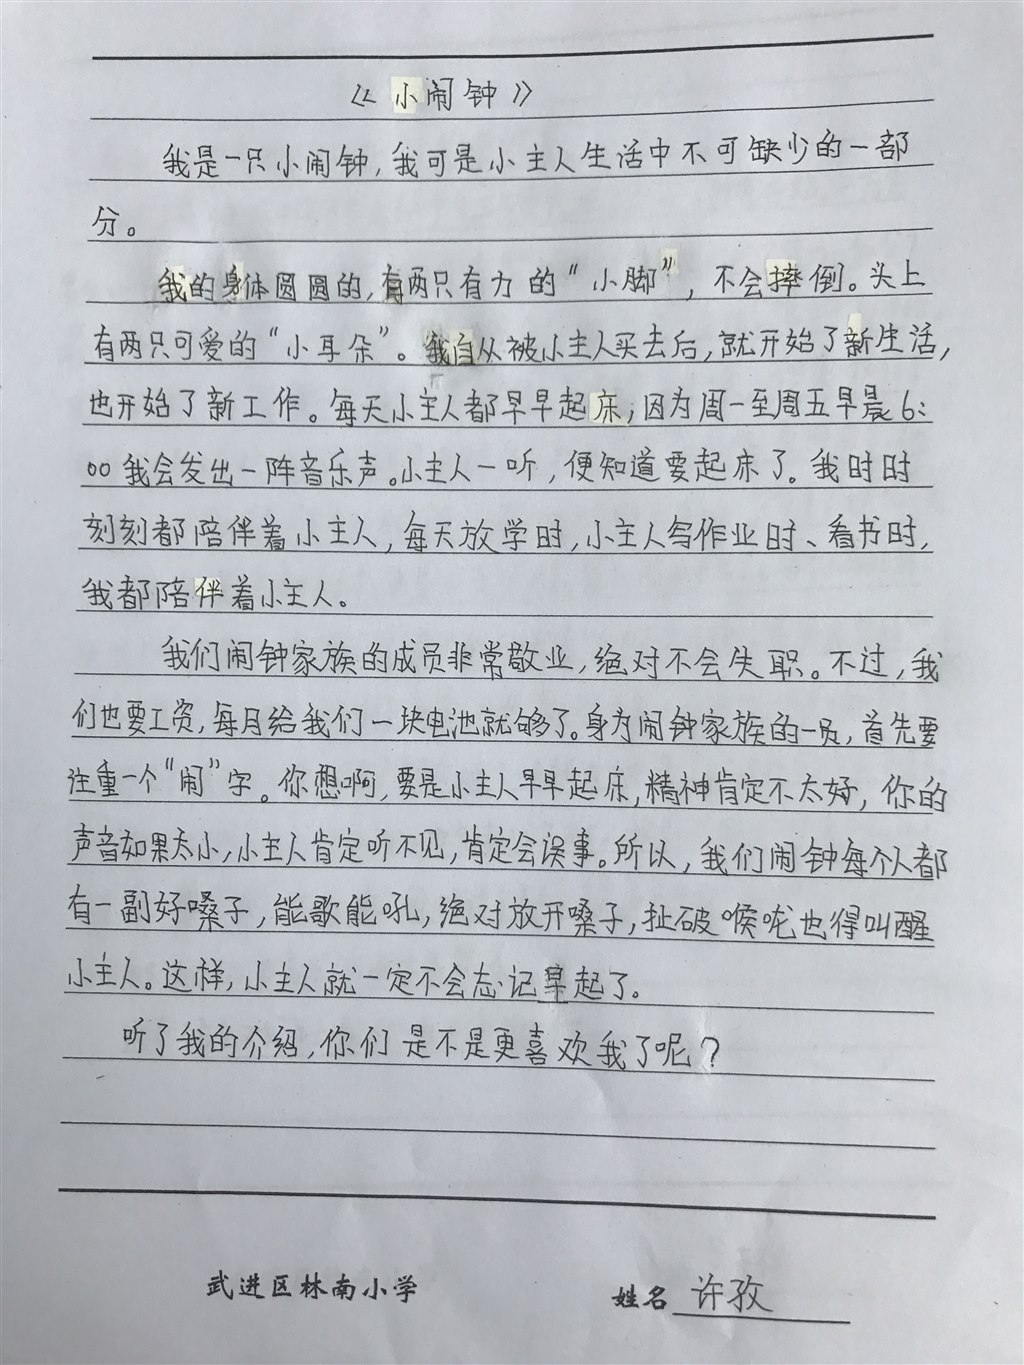 《小闹钟》
我是一只小闹钟,我可是小主人生活中不可缺少的一部
分。
我的身体圆圆的,有两只有力的“小脚”,不会摔倒。头上
有两只可爱的“小耳朵”。我自从被小主人买去后,就开始了新生活,
也开始了新工作。每天小主人都早早起床,因为周一至周五早晨6:
00我会发出一阵音乐声。小主人一听,便知道要起床了。我时时
刻刻都陪伴着小主人,每天放学时,小主人写作业时、看书时,
我都陪伴着小主人。
我们闹钟家族的成员非常敬业,绝对不会失职。不过,我
们也要工资,每月给我们一块电池就够了。身为闹钟家族的一员,首先要
注重一个“闹”字。你想啊,要是小主人早早起床,精神肯定不太好,你的
声音如果太小,小主人肯定听不见,肯定会误事。所以,我们闹钟每个人都
有一副好嗓子,能歌能吼,绝对放开嗓子,扯破喉咙也得叫醒
小主人。这样,小主人就一定不会忘记早起了。
听了我的介绍,你们是不是更喜欢我了呢?
武进区林南小学 姓名 许孜